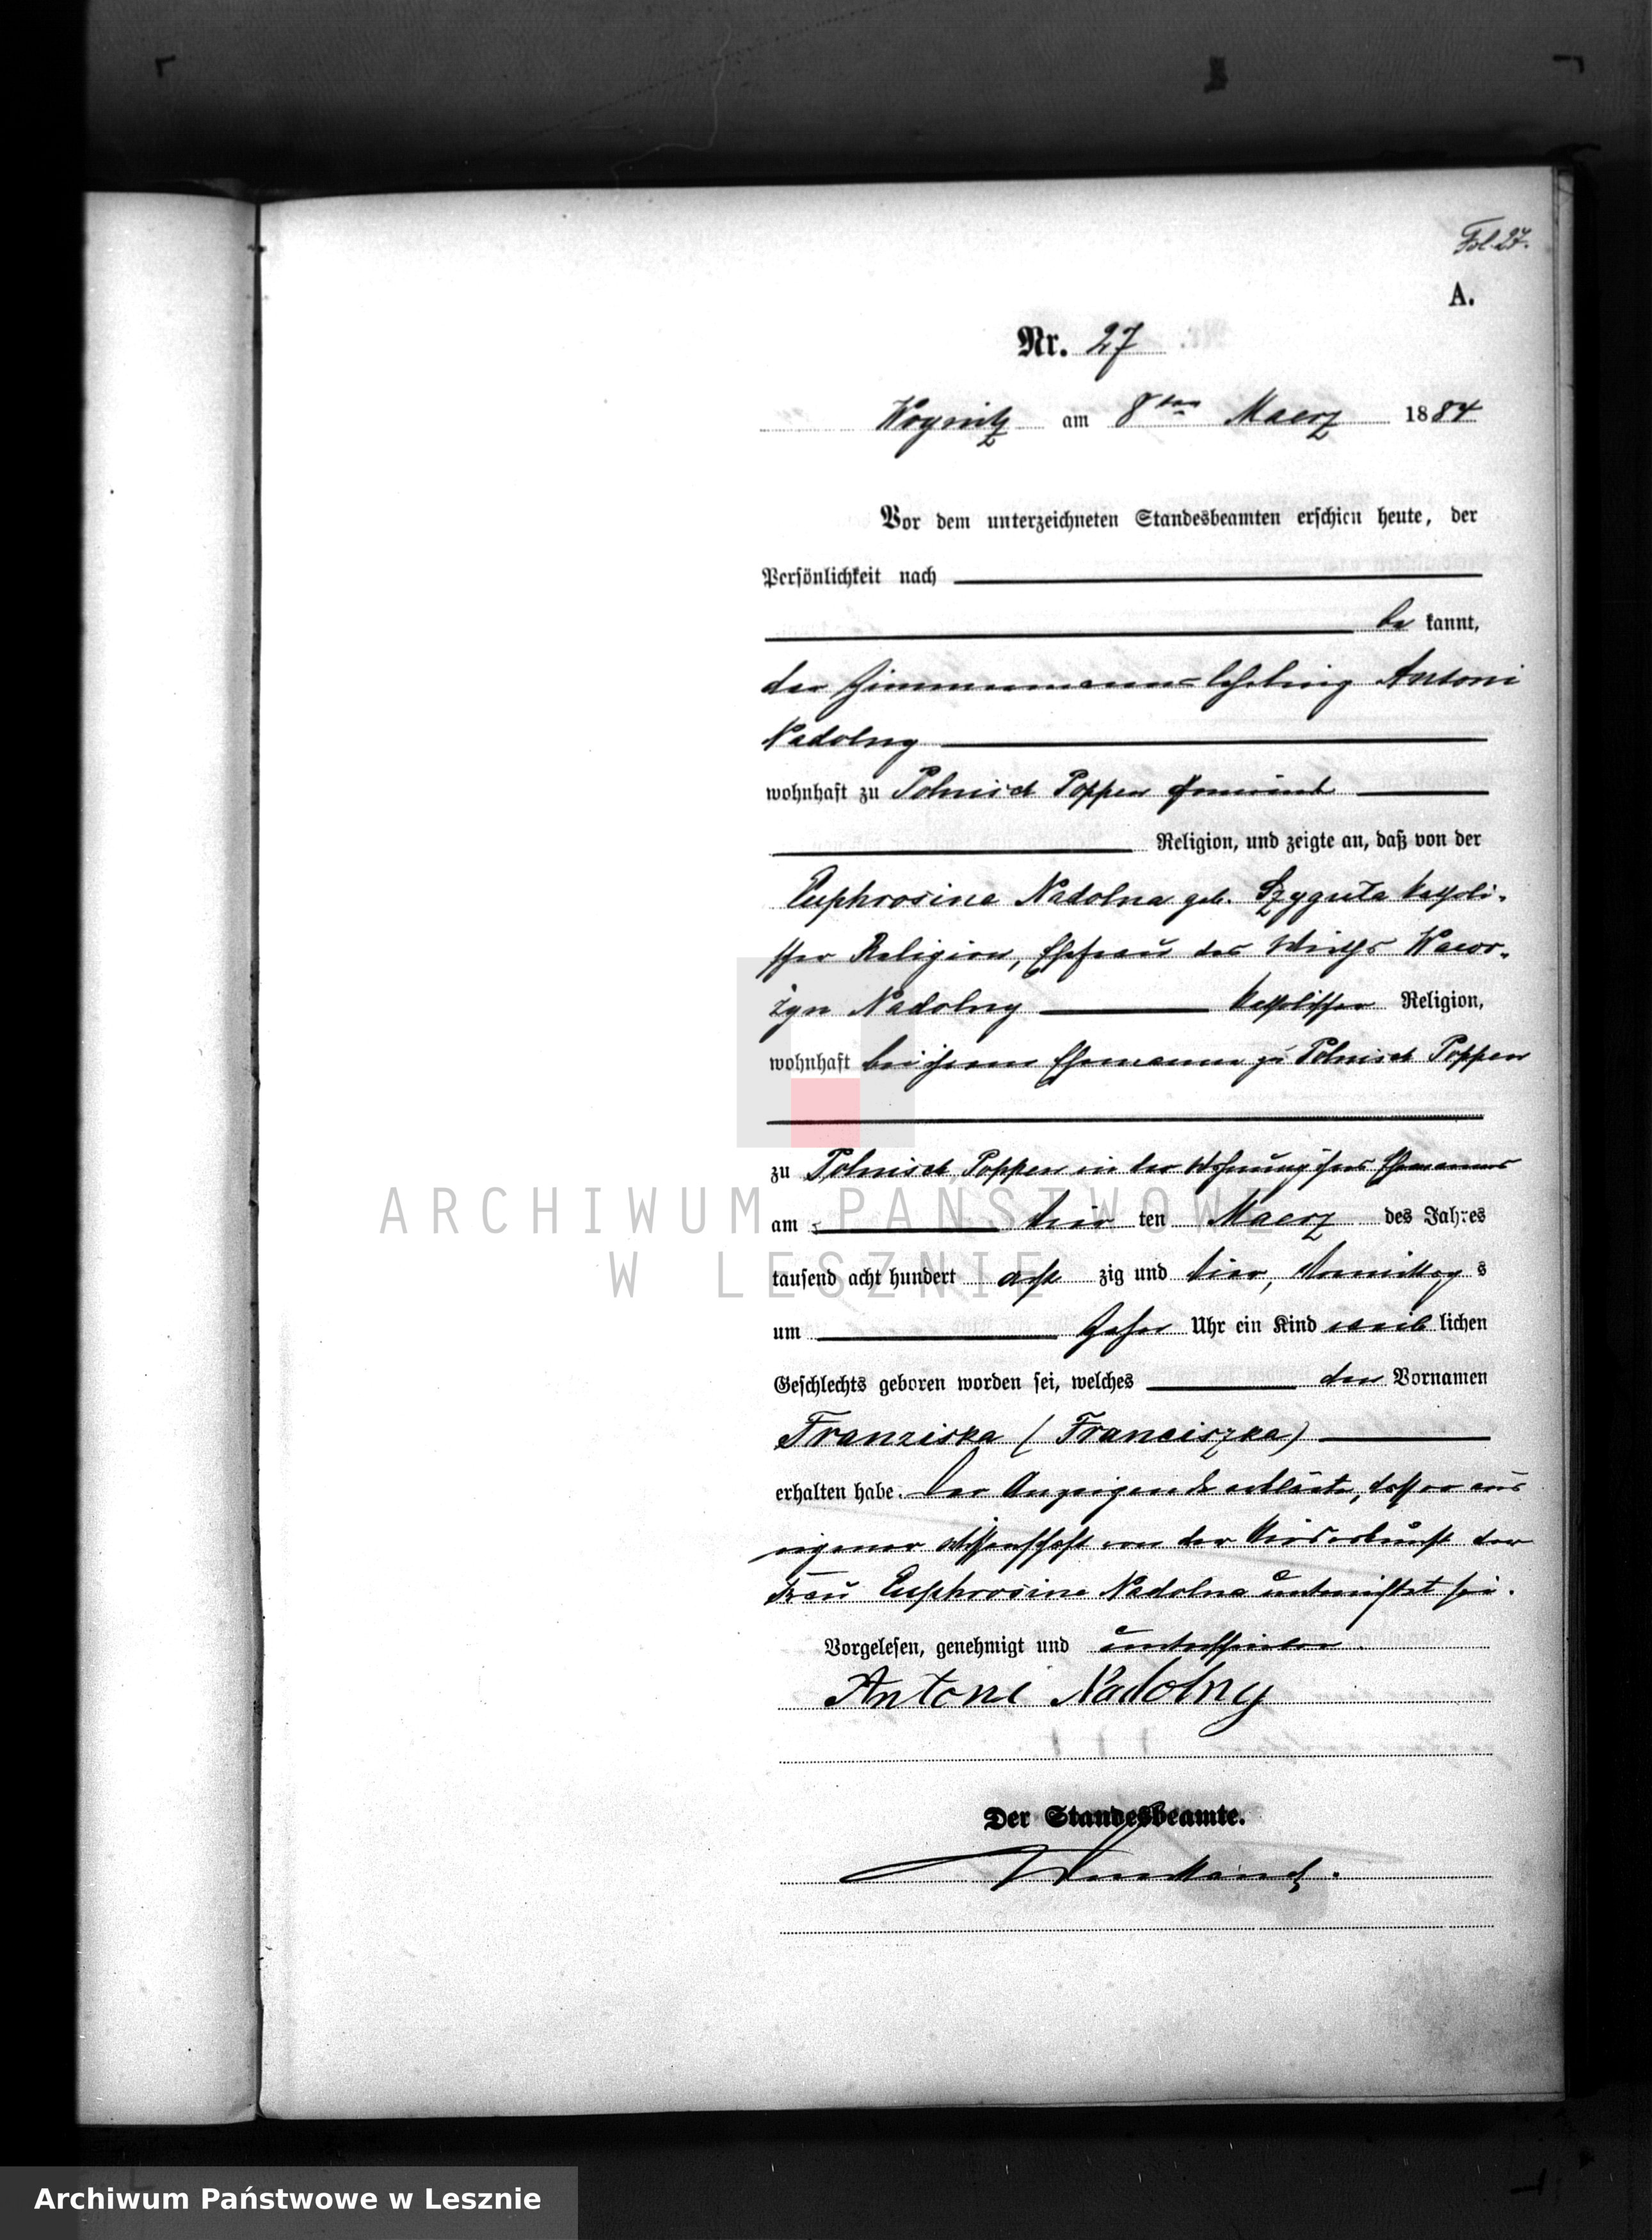 Fol. 27.
A.
Nr. 27
Woynitz am 8ten Maerz 1884
Vor dem unterzeichneten Standesbeamten erschien heute, der
Persönlichkeit nach
be kannt,
der Zimmermanns-lehrling Antoni
Nadolny
wohnhaft zu Polnisch Poppen
Religion, und zeigte an, daß von der
Euphrosine Nadolna geb. Szyguła katholi-
scher Religion, Ehefrau des Wirths Wawr-
zyn Nadolny katholischer Religion,
wohnhaft bei ihrem Ehemanne zu Polnisch Poppen
zu Polnisch Poppen in der Wohnung ihres Ehemannes
am vier ten Maerz des Jahres
tausend acht hundert acht zig und vier, Vormittag s
um Uhr ein Kind weib lichen
Geschlechts geboren worden sei, welches den Vornamen
Franziska (Franciszka)
erhalten habe. Der Anzeigende erklärte, daß er aus
eigener Wissenschaft von der Niederkunft der
Frau Euphrosine Nadolna unterrichtet sei.
Vorgelesen, genehmigt und unterschrieben.
Antoni Nadolny
Der Standesbeamte.
ARCHIWUM PAŃSTWOWE
W LESZNIE
Archiwum Państwowe w Lesznie